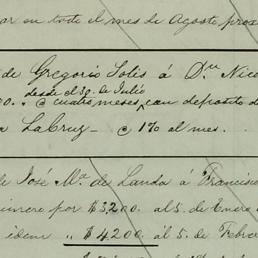 ar en todo el mes de Agosto, prox
de Gregorio Solis á Dn Nico
desde el 30 de Julio
00. á cuatro meses, con deposito de
a La Cruz á 1% al mes.
de José Ma. de Landa á Francisc
dinero por $3,200. al 5. de Enero
idem " $4200. al 5. de Febre